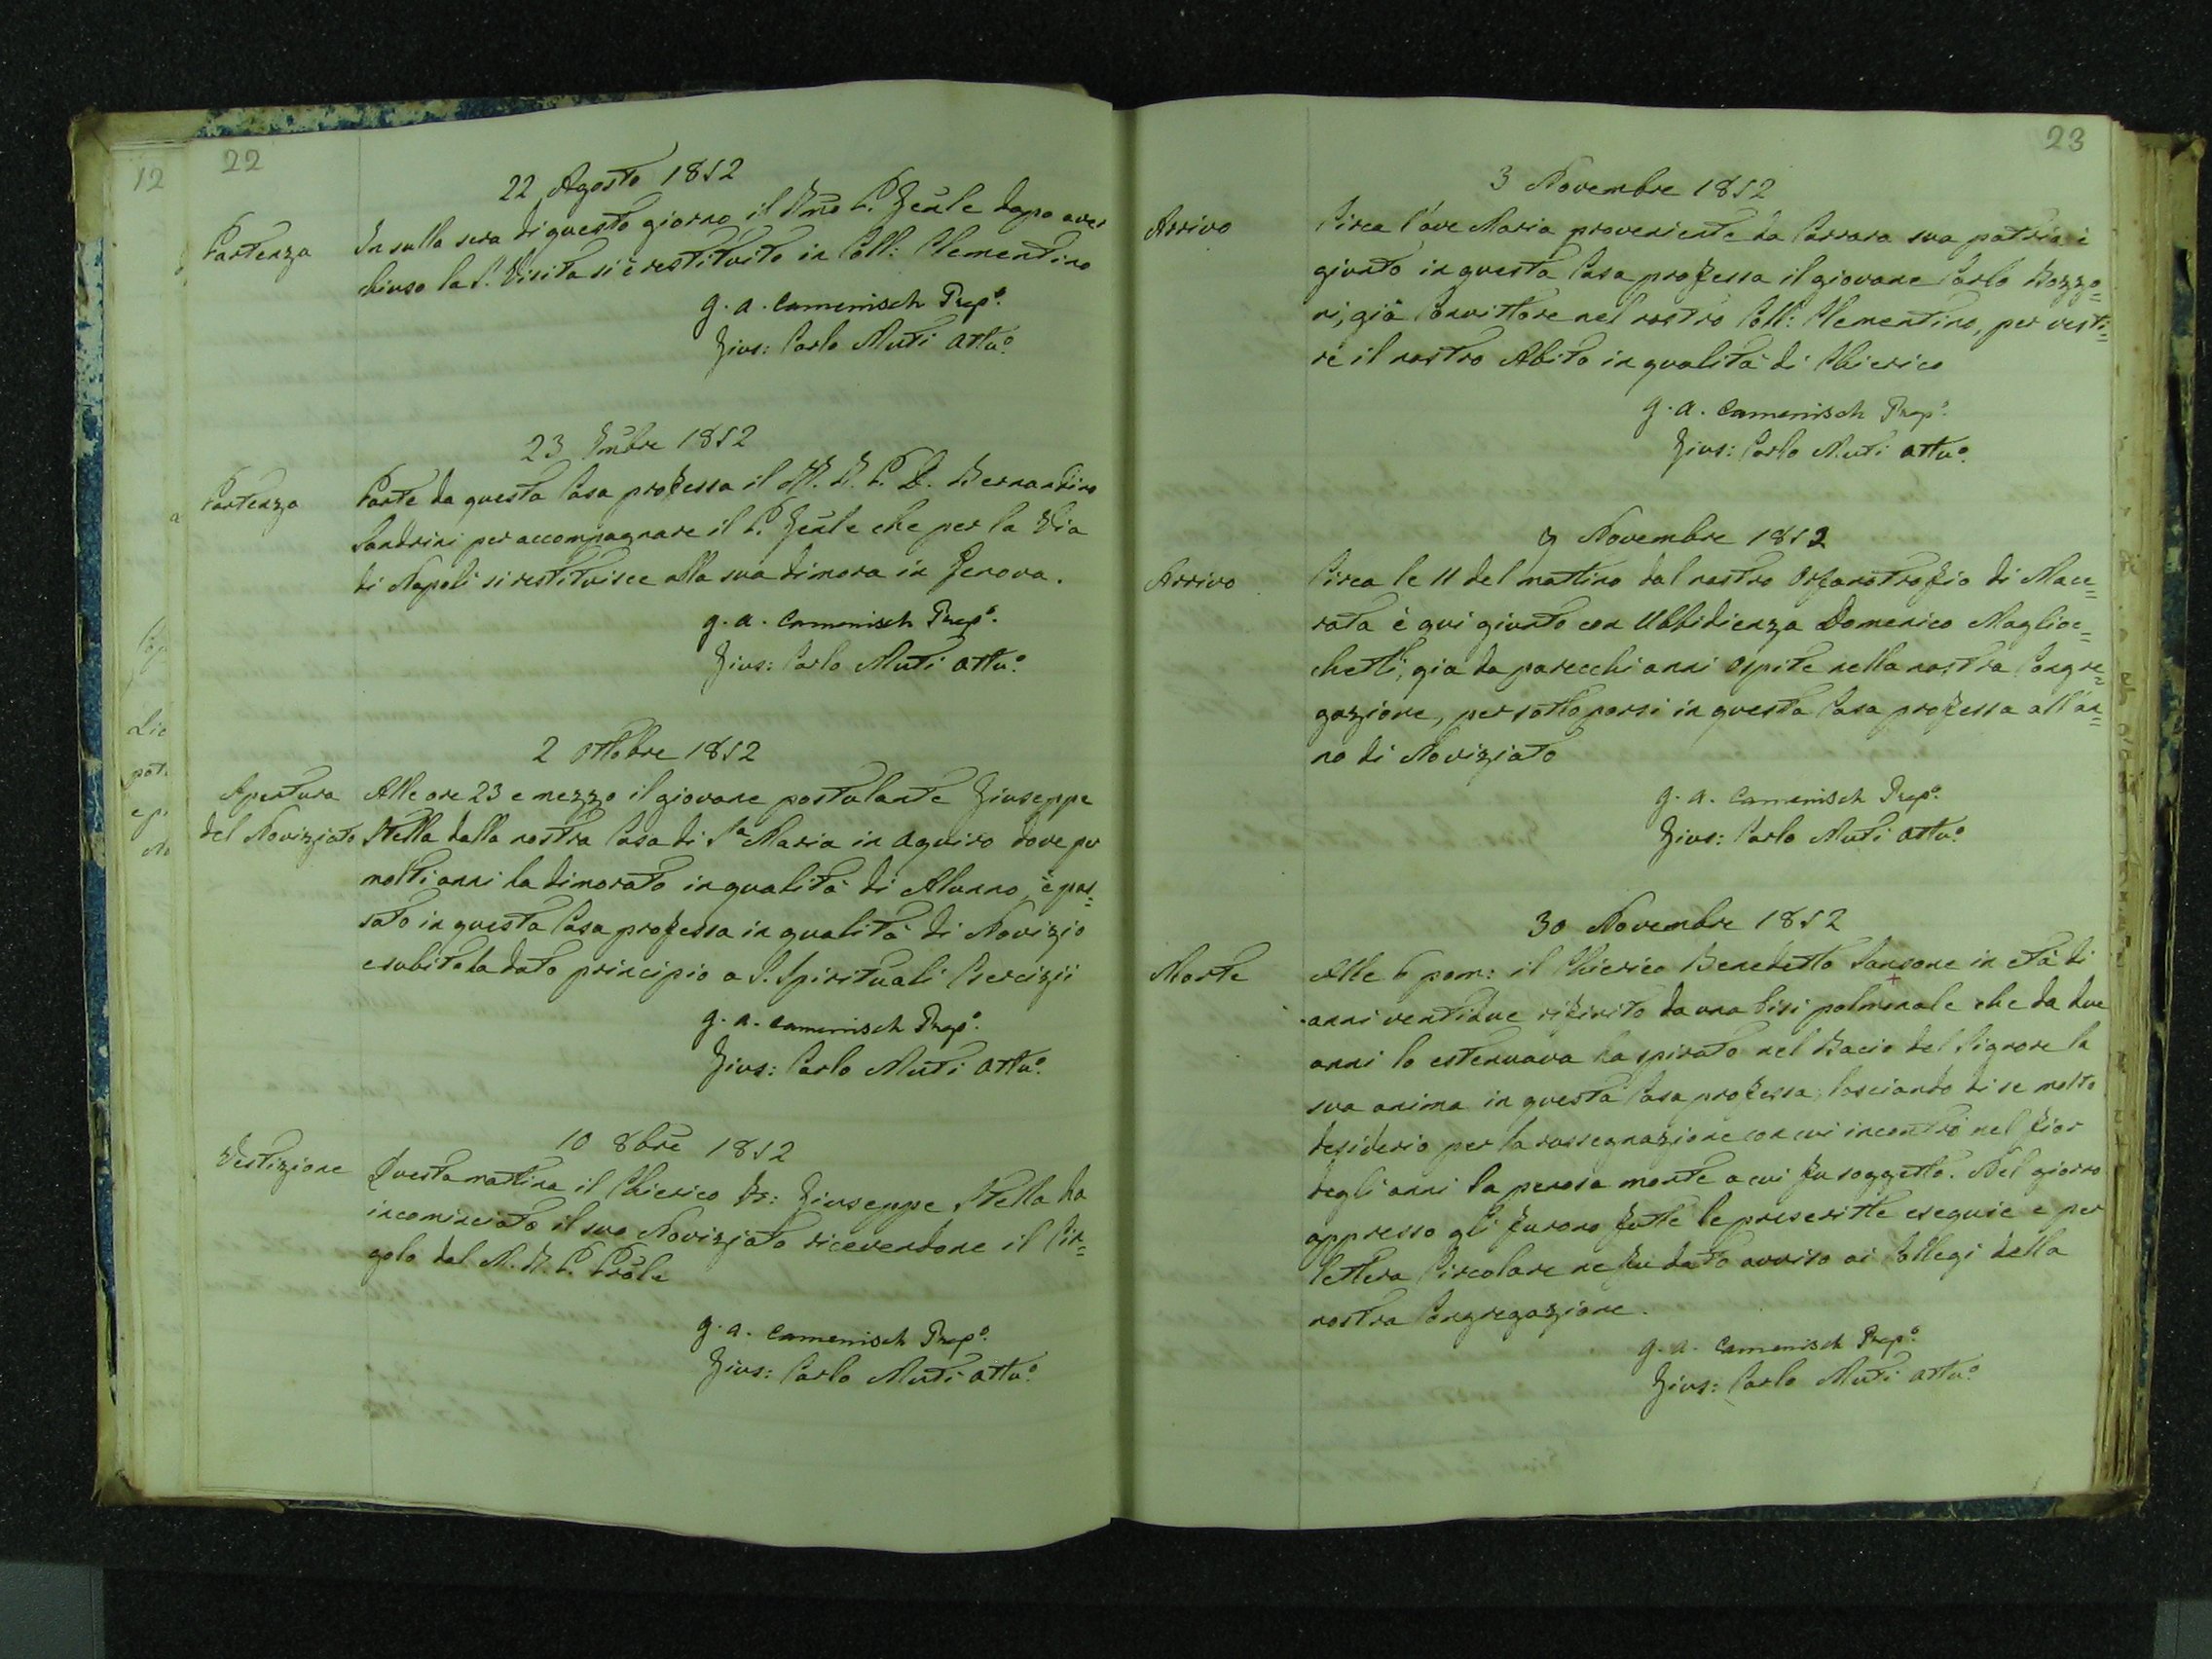 22
22 Agosto 1852
Partenza
In sulla sera di questo giorno, il Rmo P. Gen̄le dopo aver
chiuso la S. Visita si è restituito in Coll: Clementino
G. A. Camenisch Prep.o
Gius: Carlo Muti Attu.o
23 7mbre 1852
Partenza
Parte da questa Casa professa il M. R. P. D. Bernardino
Sandrini per accompagnare il P. Gen̄le che per la Via
di Napoli si restituisce alla sua dimora in Genova.
G. A. Camenisch Prep.o
Gius: Carlo Muti Attu.o
2 Ottobre 1852
Apertura
del Noviziato
Alle ore 23 e mezzo il giovane postulante Giuseppe
Stella dalla nostra Casa di S.a Maria in Aquiro dove per
molti anni ha dimorato in qualità di Alunno, è pas=
sato in questa Casa professa in qualità di Novizio
e subito ha dato principio a S. Spirituali Esercizii
G. A. Camenisch Prep.o
Gius: Carlo Muti Attu.o
10 8bre 1852
Vestizione
Questa mattina il Chierico Fr: Giuseppe Stella ha
incominciato il suo Noviziato ricevendone il Cin=
golo dal M. R. P. Pro̅le
G. A. Camenisch Prep.o
Gius: Carlo Muti Attu.o
12
Lio
23
3 Novembre 1852
Arrivo
Circa l'ave Maria proveniente da Carrara sua patria è
giunto in questa Casa professa il giovane Carlo Bozzo=
ni, già Convittore nel nostro Coll: Clementino, per vesti=
re il nostro Abito in qualità di Chierico
G. A. Camenisch Prep.o
Gius: Carlo Muti Attu.o
9 Novembre 1852
Arrivo
Circa le 11 del mattino dal nostro Orfanotrofio di Mace=
rata è qui giunto con Ubbidienza Domenico Maglioc=
chetti, già da parecchi anni Ospite nella nostra Congre=
gazione, per sottoporsi in questa Casa professa all'an=
no di Noviziato
G. A. Camenisch Prep.o
Gius: Carlo Muti Attu.o
30 Novembre 1852
Morte
Alle 6 pom: il Chierico Benedetto Sansone in età di
anni ventidue rifinito da una tisi polmonale che da due
anni lo estenuava ha spirato nel Bacio del Signore la
sua anima in questa Casa professa, lasciando di se molto
desiderio per la rassegnazione con cui incontrò nel fior
degli anni la penosa morte a cui fu soggetto. Nel giorno
appresso gli furono fatte le prescritte esequie e per
lettera Circolare ne fu dato avviso ai Collegi della
nostra Congregazione.
G. A. Camenisch Prep.o
Gius: Carlo Muti Attu.o